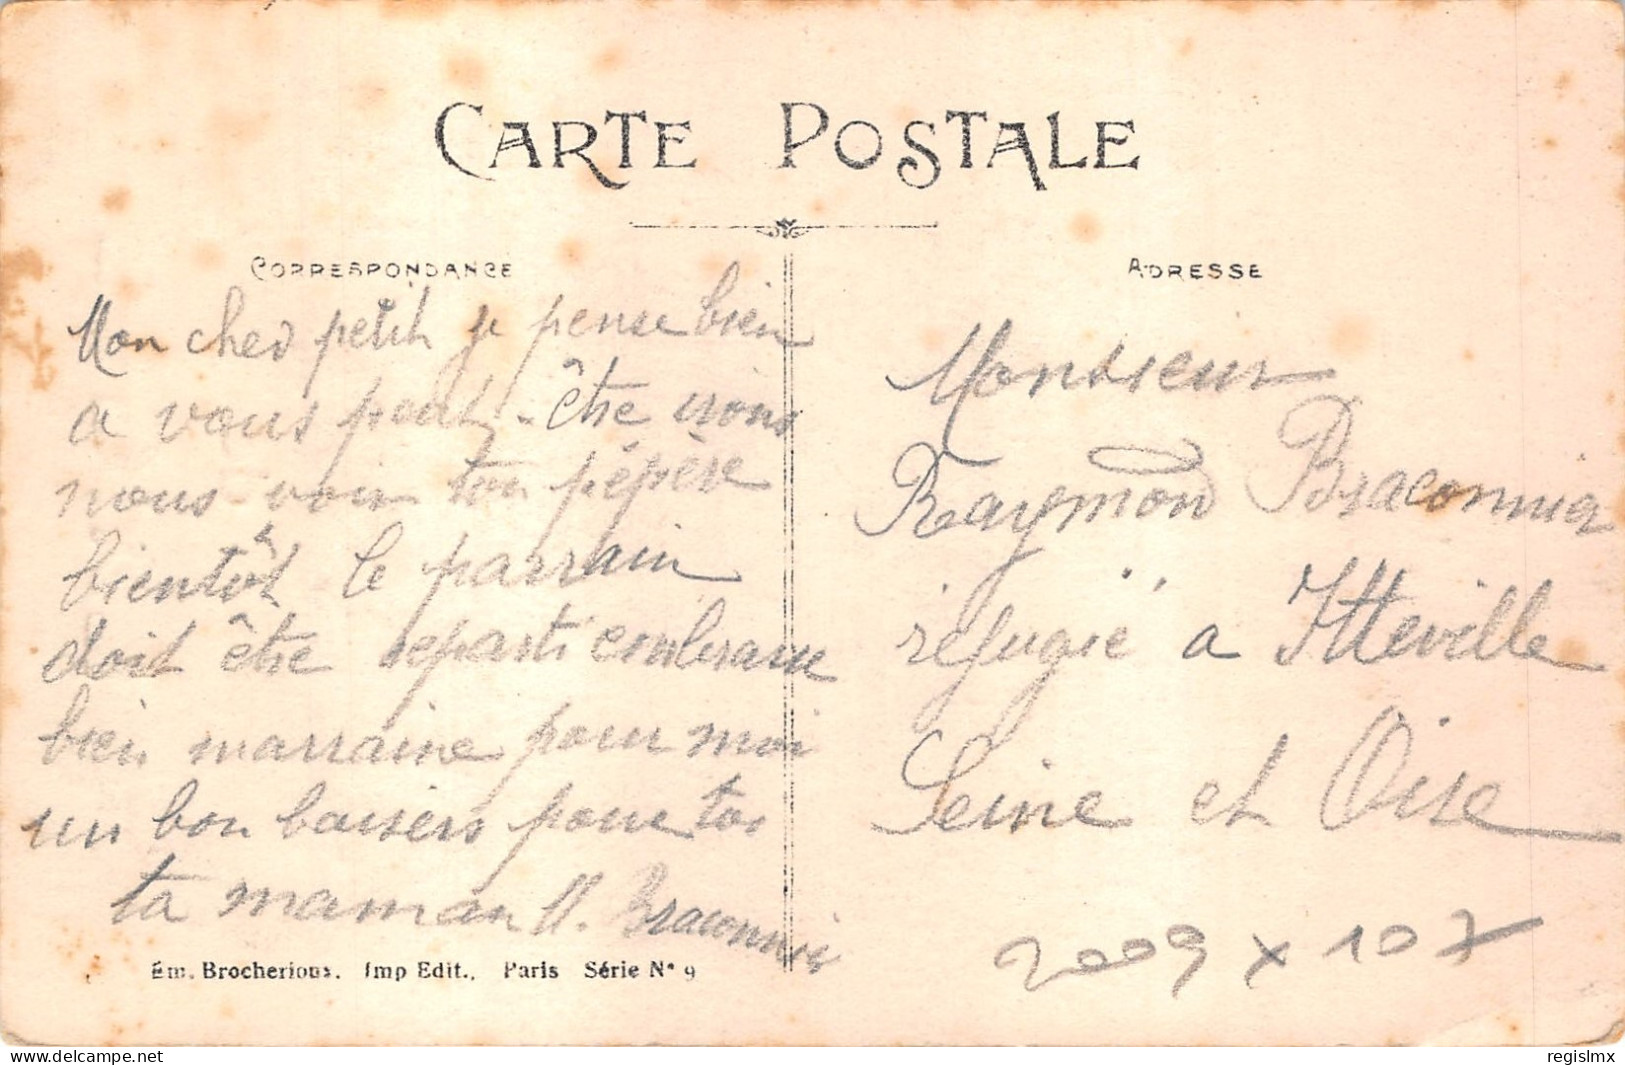 CARTE POSTALE
CORRESPONDANCE
Mon cher petit je pense bien
a vous peut-être irons
nous voir ton pépère
bientôt le parrain
doit être reparti embrasse
bien marraine pour moi
un bon baisers pour toi
ta maman V. Braconnier
Em. Brocherioux. Imp Edit., Paris Série N° 9
ADRESSE
Monsieur
Raymond Braconnier
réfugié a Itteville
Seine et Oise
2009 x 107
regislmx